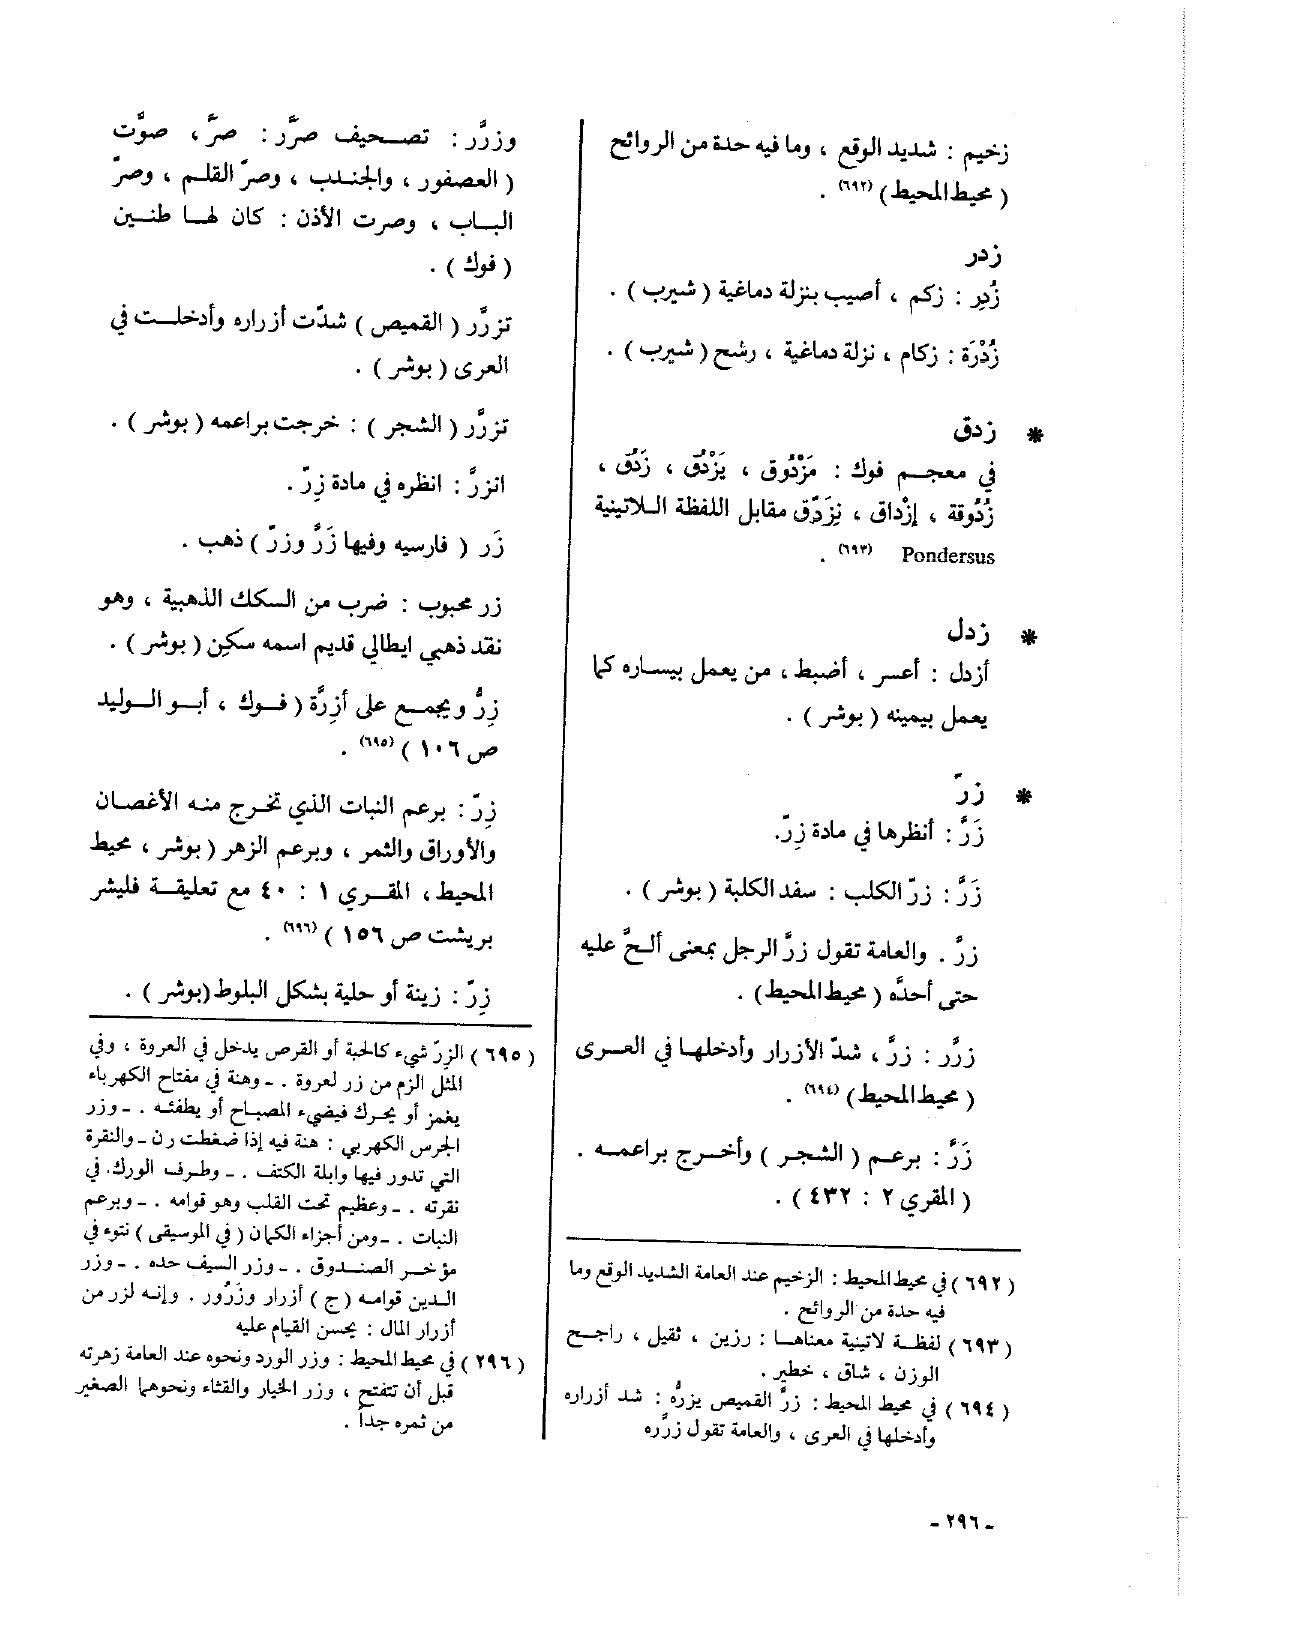 زخيم : شديد الوقع ، وما فيه حدة من الروائح
( محيط المحيط ) (٦٩٢) .
زدر
زُدِر : زكم ، أصيب بنزلة دماغية ( شيرب ) .
زُدْرَة : زكام ، نزلة دماغية ، رشح ( شيرب ) .
* زدق
في معجم فوك : مَزْدُوق ، يَزْدُق ، زَدُق ،
زُدُوقة ، إزْداق ، نِزَدّق مقابل اللفظة اللاتينية
Pondersus (٦٩٣) .
* زدل
أزدل : أعسر ، أضبط ، من يعمل بيساره كما
يعمل بيمينه ( بوشر ) .
* زرّ
زَرَّ : أنظرها في مادة زِرّ.
زَرَّ : زرّ الكلب : سفد الكلبة ( بوشر ) .
زرَّ . والعامة تقول زرَّ الرجل بمعنى ألحَّ عليه
حتى أحدَّه ( محيط المحيط) .
زرَّر : زرَّ ، شدّ الأزرار وأدخلها في العرى
( محيط المحيط ) (٦٩٤) .
زَرَّ : برعم ( الشجر ) وأخرج براعمه .
( المقري ٢ : ٤٣٢ ) .
(٦٩٢) في محيط المحيط : الزخيم عند العامة الشديد الوقع وما
فيه حدة من الروائح .
(٦٩٣) لفظة لاتينية معناها : رزين ، ثقيل ، راجح
الوزن ، شاق ، خطير .
(٦٩٤) في محيط المحيط : زرَّ القميص يزرُّه : شد أزراره
وأدخلها في العرى ، والعامة تقول زرَّره
وزرَّر : تصحيف صرَّر : صرَّ ، صوَّت
( العصفور ، والجندب ، وصرّ القلم ، وصرّ
الباب ، وصرت الأذن : كان لها طنين
( فوك ) .
تزرَّر ( القميص ) شدّت أزراره وأدخلت في
العرى ( بوشر ) .
تزرَّر ( الشجر ) : خرجت براعمه ( بوشر ) .
انزرَّ : انظره في مادة زِرّ .
زَر ( فارسيه وفيها زَرَّ وزرّ ) ذهب .
زر محبوب : ضرب من السكك الذهبية ، وهو
نقد ذهبي ايطالي قديم اسمه سكِن ( بوشر ) .
زِرُّ ويجمع على أزِرَّة ( فوك ، أبو الوليد
ص ١٠٦ ) (٦٩٥) .
زِرّ : برعم النبات الذي تخرج منه الأغصان
والأوراق والثمر ، وبرعم الزهر ( بوشر ، محيط
المحيط ، المقري ١ : ٤٠ مع تعليقة فليشر
بريشت ص ١٥٦ ) (٦٩٦) .
زِرّ : زينة أو حلية بشكل البلوط (بوشر ) .
(٦٩٥) الزِرّ شيء كالحبة أو القرص يدخل في العروة ، وفي
المثل الزم من زر لعروة . ـ وهنة في مفتاح الكهرباء
يغمز أو يحرك فيضيء المصباح أو يطفئه . ـ وزر
الجرس الكهربي : هنة فيه إذا ضغطت رن ـ والنقرة
التي تدور فيها وابلة الكتف . ـ وطرف الورك، في
نقرته . ـ وعظيم تحت القلب وهو قوامه . ـ وبرعم
النبات . ـ ومن أجزاء الكمان ( في الموسيقى ) نتوء في
مؤخر الصندوق . ـ وزر السيف حده . ـ وزر
الدين قوامه ( ج ) أزرار وزَرُور . وإنه لزر من
أزرار المال : يحسن القيام عليه
(٢٩٦) في محيط المحيط : وزر الورد ونحوه عند العامة زهرته
قبل أن تتفتح ، وزر الخيار والقثاء ونحوهما الصغير
من ثمره جداً .
ـ ٢٩٦ ـ